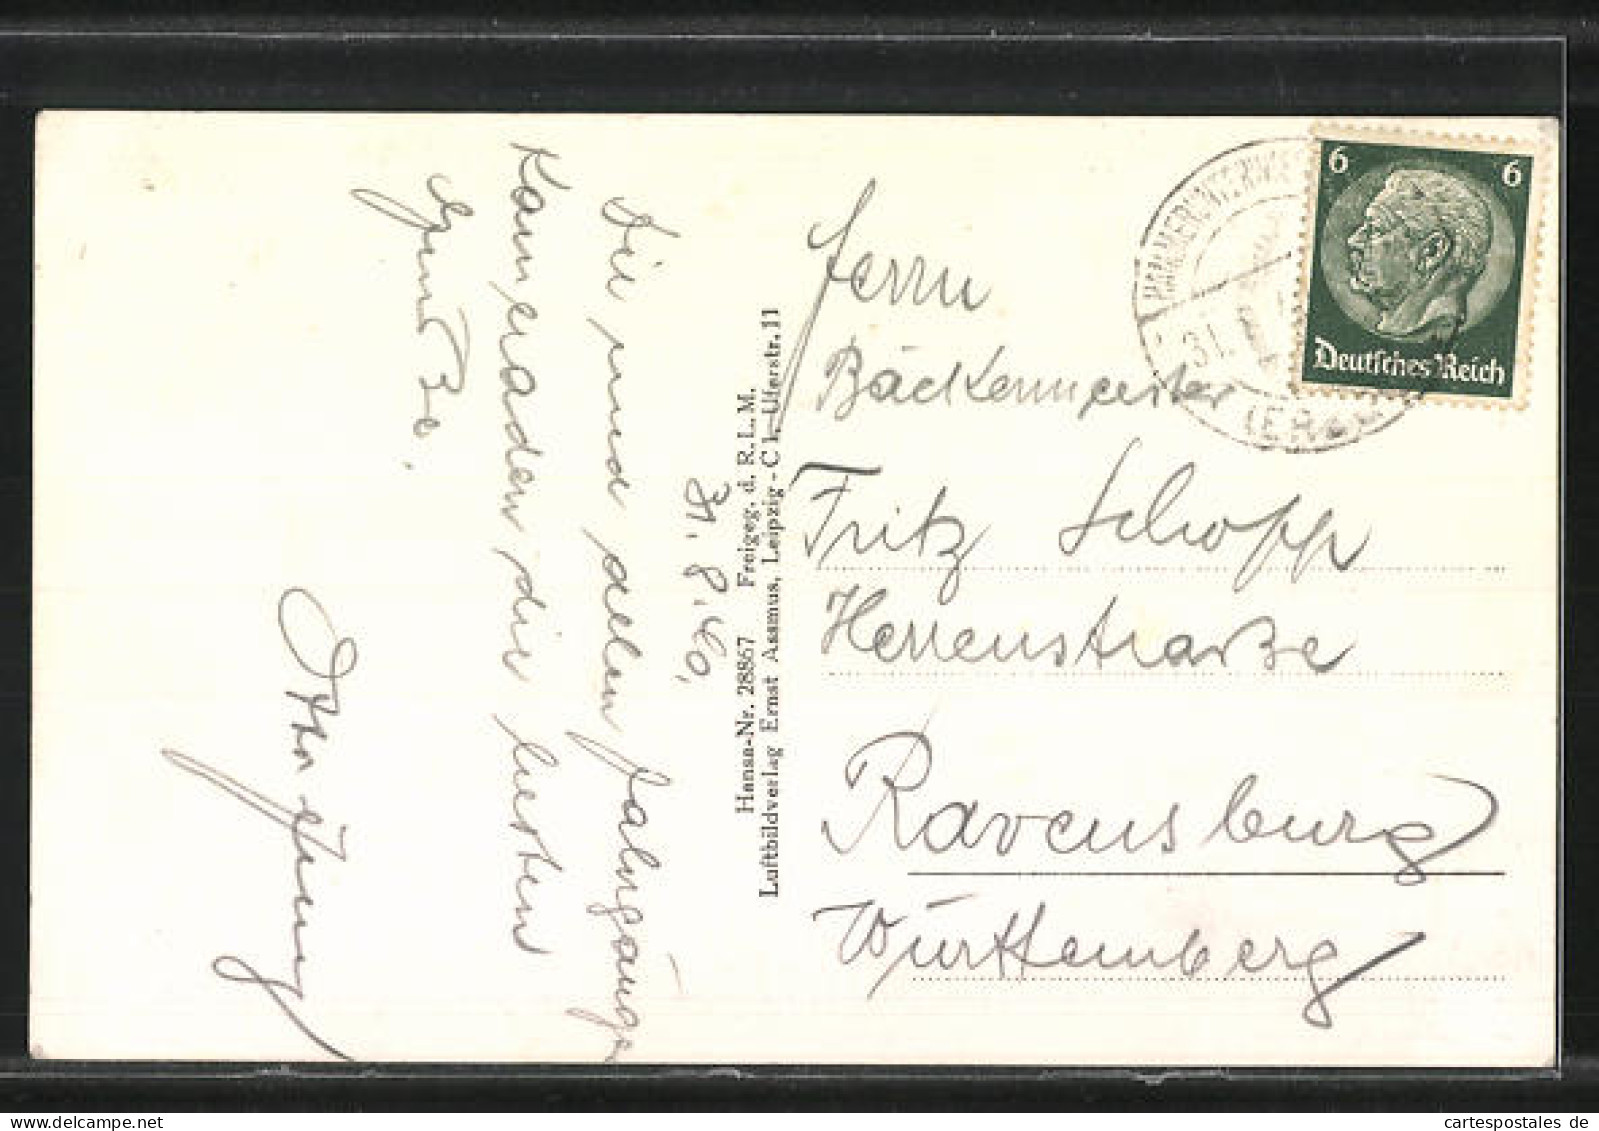 31. 8. 40.
Dir und allen Jahrgänger
Kameraden die besten
Grüße.
Otto Jung
Hansa-Nr. 28867 Freigeg. d. R. L. M.
Luftbildverlag Ernst Assmus, Leipzig-C 1, Uferstr. 11
HAMMERUNTERWIESENTHAL
31.
(ERZ
6 6
Deutsches Reich
Herrn
Bäckermeister
Fritz Schopp
Herrenstraße
Ravensburg
Württemberg
cartespostales de